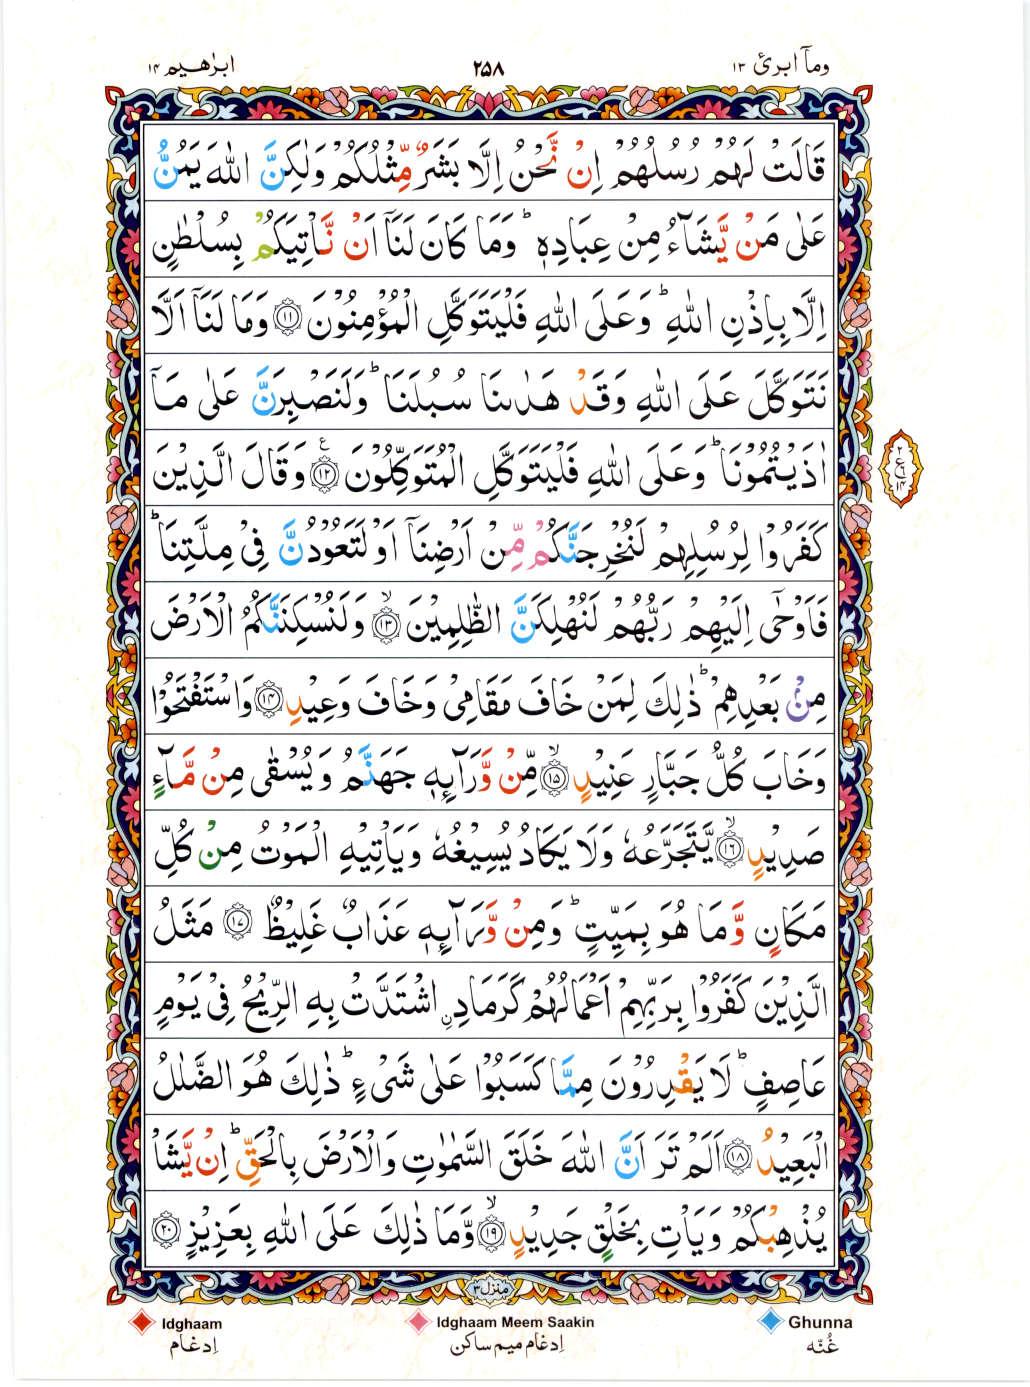 ابرٰهيم ١٤ ٢٥٨ ومآ ابرئ ١٣
قَالَتْ لَهُمْ رُسُلُهُمْ اِنْ نَّحْنُ اِلَّا بَشَرٌ مِّثْلُكُمْ وَلٰكِنَّ اللّٰهَ يَمُنُّ
عَلٰى مَنْ يَّشَآءُ مِنْ عِبَادِهٖ ؕ وَمَا كَانَ لَنَاۤ اَنْ نَّاْتِيَكُمْ بِسُلْطٰنٍ
اِلَّا بِاِذْنِ اللّٰهِ ؕ وَعَلَى اللّٰهِ فَلْيَتَوَكَّلِ الْمُؤْمِنُوْنَ ﴿١١﴾ وَمَا لَنَاۤ اَلَّا
نَتَوَكَّلَ عَلَى اللّٰهِ وَقَدْ هَدٰىنَا سُبُلَنَا ؕ وَلَنَصْبِرَنَّ عَلٰى مَاۤ
اٰذَيْتُمُوْنَا ؕ وَعَلَى اللّٰهِ فَلْيَتَوَكَّلِ الْمُتَوَكِّلُوْنَ ﴿١٢﴾ ع وَقَالَ الَّذِيْنَ
كَفَرُوْا لِرُسُلِهِمْ لَنُخْرِجَنَّكُمْ مِّنْ اَرْضِنَاۤ اَوْ لَتَعُوْدُنَّ فِيْ مِلَّتِنَا ؕ
فَاَوْحٰۤى اِلَيْهِمْ رَبُّهُمْ لَنُهْلِكَنَّ الظّٰلِمِيْنَ ۙ﴿١٣﴾ وَلَنُسْكِنَنَّكُمُ الْاَرْضَ
مِنْۢ بَعْدِهِمْ ؕ ذٰلِكَ لِمَنْ خَافَ مَقَامِيْ وَخَافَ وَعِيْدِ ﴿١٤﴾ وَاسْتَفْتَحُوْا
وَخَابَ كُلُّ جَبَّارٍ عَنِيْدٍ ۙ﴿١٥﴾ مِّنْ وَّرَآئِهٖ جَهَنَّمُ وَيُسْقٰى مِنْ مَّآءٍ
صَدِيْدٍ ۙ﴿١٦﴾ يَّتَجَرَّعُهٗ وَلَا يَكَادُ يُسِيْغُهٗ وَيَاْتِيْهِ الْمَوْتُ مِنْ كُلِّ
مَكَانٍ وَّمَا هُوَ بِمَيِّتٍ ؕ وَمِنْ وَّرَآئِهٖ عَذَابٌ غَلِيْظٌ ﴿١٧﴾ مَثَلُ
الَّذِيْنَ كَفَرُوْا بِرَبِّهِمْ اَعْمَالُهُمْ كَرَمَادِ ۨاشْتَدَّتْ بِهِ الرِّيْحُ فِيْ يَوْمٍ
عَاصِفٍ ؕ لَا يَقْدِرُوْنَ مِمَّا كَسَبُوْا عَلٰى شَيْءٍ ؕ ذٰلِكَ هُوَ الضَّلٰلُ
الْبَعِيْدُ ﴿١٨﴾ اَلَمْ تَرَ اَنَّ اللّٰهَ خَلَقَ السَّمٰوٰتِ وَالْاَرْضَ بِالْحَقِّ ؕ اِنْ يَّشَاْ
يُذْهِبْكُمْ وَيَاْتِ بِخَلْقٍ جَدِيْدٍ ۙ﴿١٩﴾ وَّمَا ذٰلِكَ عَلَى اللّٰهِ بِعَزِيْزٍ ﴿٢٠﴾
٢
ع
١٤
منزل ٣
Idghaam Idghaam Meem Saakin Ghunna
اِدغام اِدغام ميم ساكن غُنّه